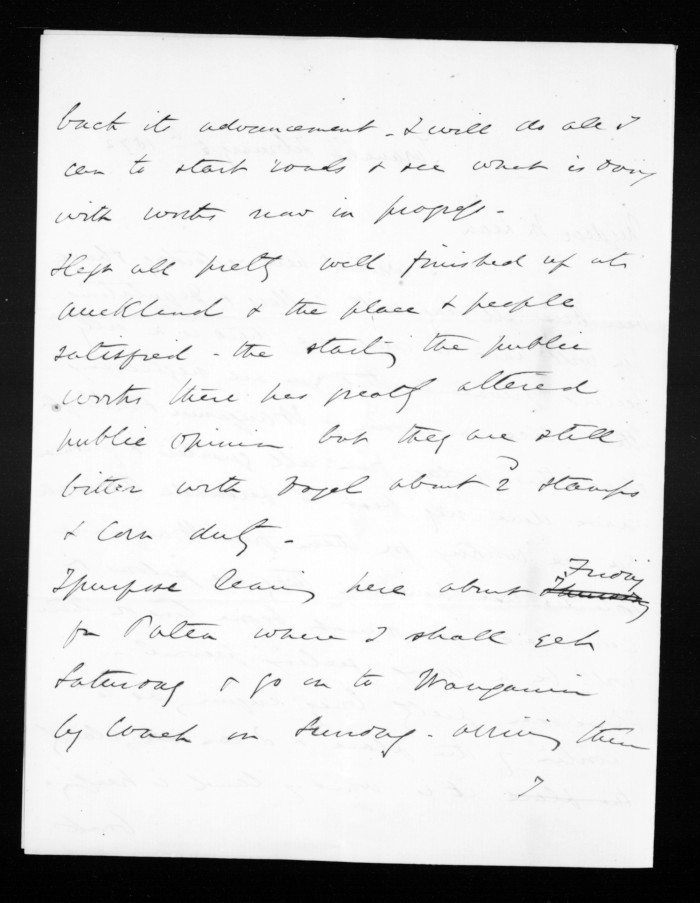 back its advancement. I will do all I
can to start roads & see what is doing
with works now in progress -
I left all pretty well finished up at
Auckland & the place & people
satisfied - the starting the public
works there has greatly altered
public opinion but they are still
bitter with Vogel about 2 stamps
& Corn duty -
I purpose leaving here about Thursday Friday
for Patea where I shall get
Saturday & go on to Wanganui
by Coach on Sunday - arriving there